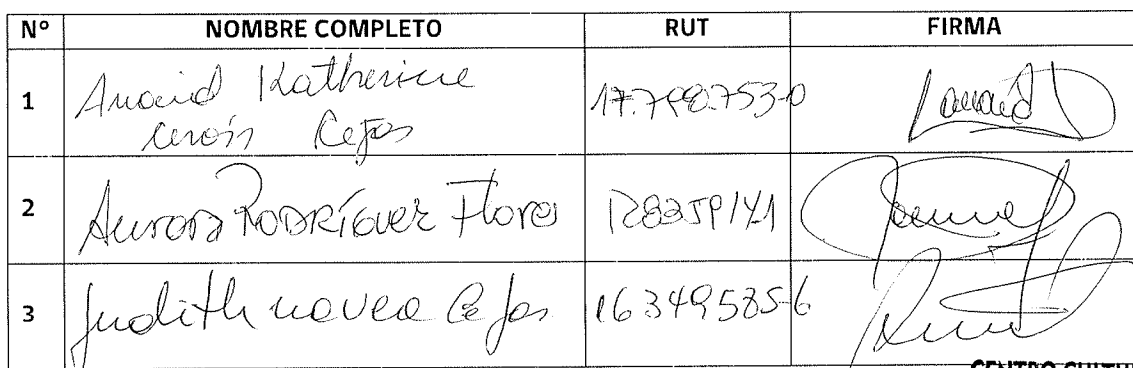 Nº NOMBRE COMPLETO RUT FIRMA
1 Anaid Katherine
Cerón Cejas 17.798.753-0
2 Aurora RODRÍGUEZ Flores
3 Judith navea Cejas 16349585-6
CENTRO